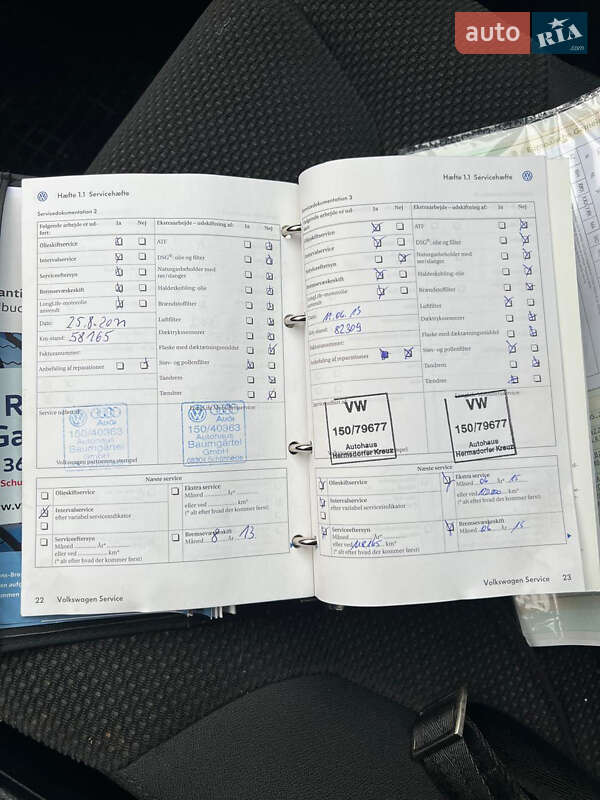 auto RIA .com
Hæfte 1.1 Servicehæfte
Servicedokumentation 2
Følgende arbejde er udført: Ja Nej Ekstraarbejde – udskiftning af: Ja Nej
Olieskiftservice
Intervalservice
Serviceeftersyn
Bremsevæskeskift
LongLife-motorolie anvendt
Dato: 25.8.2011
Km-stand: 58165
Fakturanummer:
Anbefaling af reparationer
ATF
DSG®: olie og filter
Naturgasbeholder med rør/slanger
Haldexkobling: olie
Brændstoffilter
Luftfilter
Dæktryksensorer
Flaske med dæktætningsmiddel
Støv- og pollenfilter
Tandrem
Tændrør
Service udført af:
Audi
150/40363
Autohaus
Baumgärtel
GmbH
Volkswagen partnerens stempel
Audi
150/40363
Autohaus
Baumgärtel
GmbH
08304 Schönheide
Næste service
Olieskiftservice
Intervalservice
efter variabel serviceindikator
Serviceeftersyn
Måned .......... år*
eller ved .......... km*
(* alt efter hvad der kommer først)
Ekstra service
Måned .......... år*
eller ved .......... km*
(* alt efter hvad der kommer først)
Bremsevæskeskift
Måned 8 år 13
22 Volkswagen Service
Hæfte 1.1 Servicehæfte
Servicedokumentation 3
Følgende arbejde er udført: Ja Nej Ekstraarbejde – udskiftning af: Ja Nej
Olieskiftservice
Intervalservice
Serviceeftersyn
Bremsevæskeskift
LongLife-motorolie anvendt
Dato: 11.06.13
Km-stand: 82309
Fakturanummer:
Anbefaling af reparationer
ATF
DSG®: olie og filter
Naturgasbeholder med rør/slanger
Haldexkobling: olie
Brændstoffilter
Luftfilter
Dæktryksensorer
Flaske med dæktætningsmiddel
Støv- og pollenfilter
Tandrem
Tændrør
VW
150/79677
Autohaus
Hermsdorfer Kreuz
VW
150/79677
Autohaus
Hermsdorfer Kreuz
Næste service
Olieskiftservice
Intervalservice
efter variabel serviceindikator
Serviceeftersyn
Måned .......... år*
eller ved .......... km*
(* alt efter hvad der kommer først)
Ekstra service
Måned 06 år 15
eller ved .......... km*
(* alt efter hvad der kommer først)
Bremsevæskeskift
Måned 06 år 15
Volkswagen Service 23